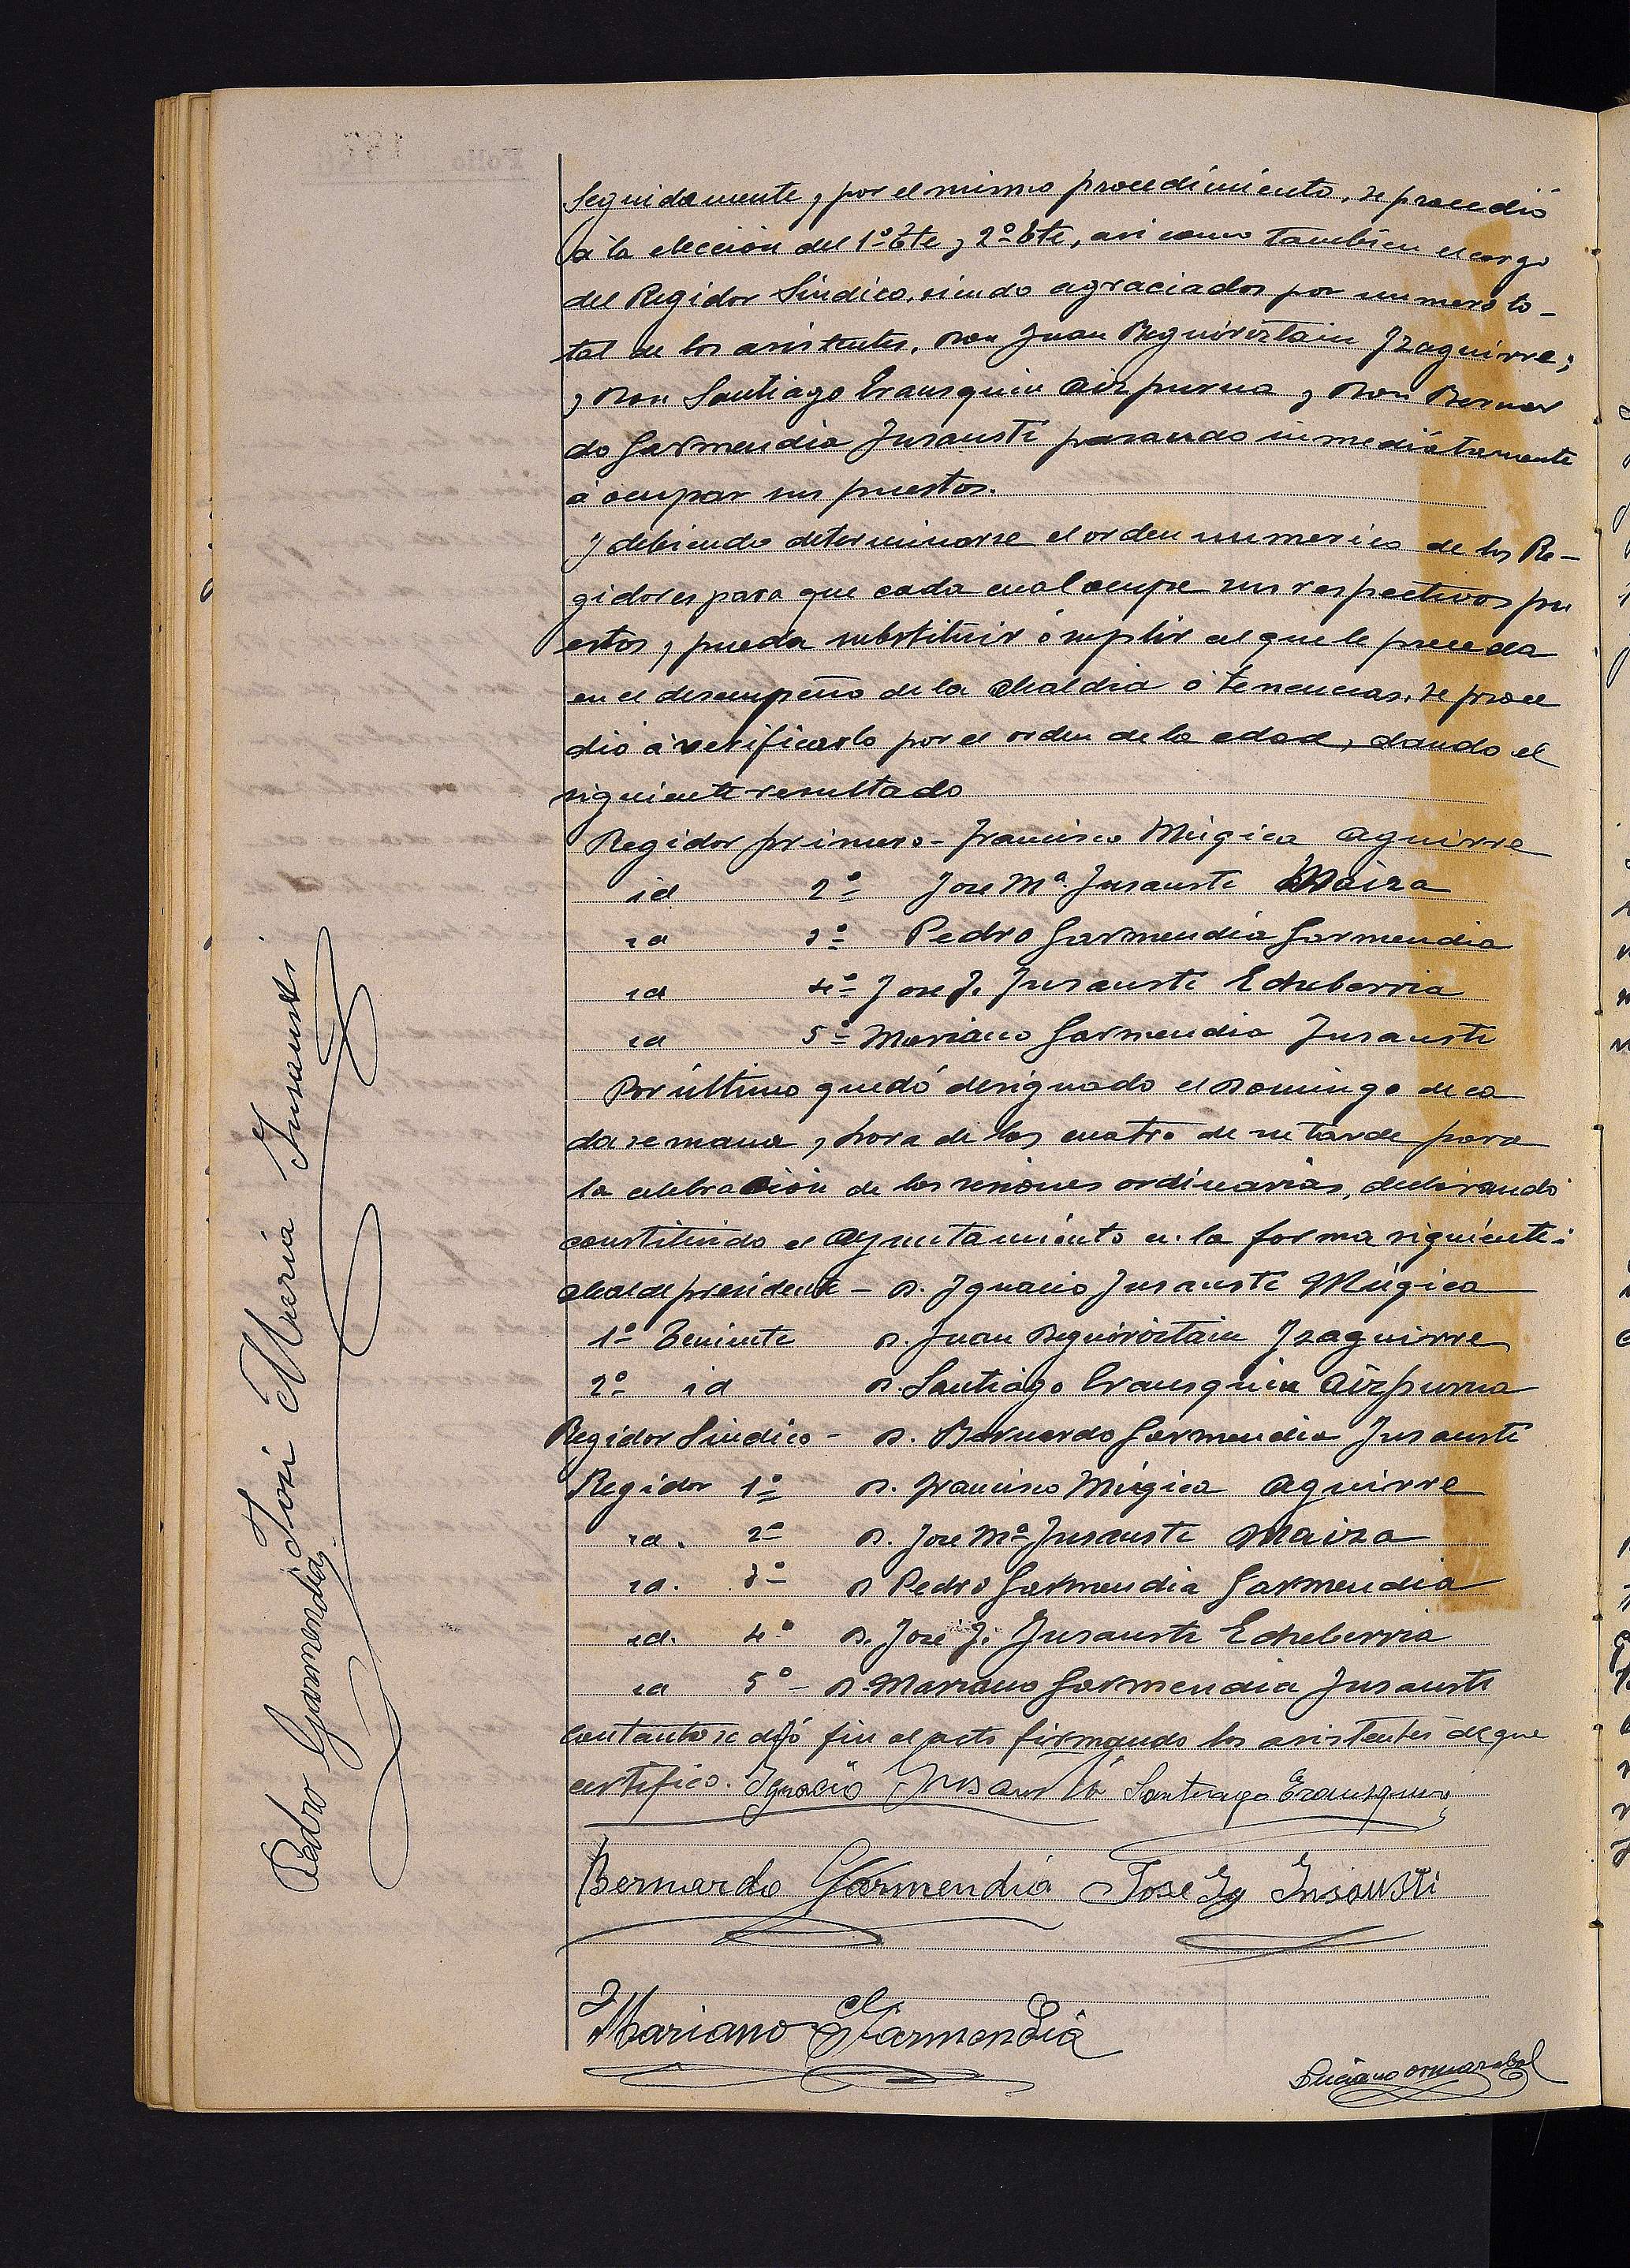 Seguidamente y por el mismo procedimiento, se procedió
á la elección del 1º Tte y 2º Tte, asi como tambien el cargo
del Regidor Sindico, siendo agraciados por numero to-
tal de los asistentes, Don Juan Beguiristain Yzaguirre;
y Don Santiago Erausquin Aizpurua y Don Bernar
do Garmendia Jusausti pasando inmediatamente
á ocupar sus puestos.
Y debiendo determinarse el orden numerico de los Re-
gidores para que cada cual ocupe sus respectivos pu
estos y pueda substituir ó suplir al que le preceda
en el desempeño de la Alcaldia ó tenencias, se proce
dió á verificarlo por el orden de la edad, dando el
siguiente resultado
Regidor primero - Francisco Múgica Aguirre
id 2º Jose Mª Jusausti Maiza
id 3º Pedro Garmendia Garmendia
id 4º Jose J. Jusausti Echeberria
id 5º Mariano Garmendia Jusausti
Por último quedó designado el Domingo de ca
da semana y hora de las cuatro de su tarde para
la celebración de las sesiones ordinarias, declarando
constituido el Ayuntamiento en la forma siguiente:
Alcalde presidente - D. Ygnacio Jusausti Múgica
1º Teniente D. Juan Beguiristain Yzaguirre
2º id D. Santiago Erausquin Aizpurua
Regidor Sindico - D. Bernardo Garmendia Jusausti
Regidor 1º D. Francisco Múgica Aguirre
id. 2º D. Jose Mª Jusausti Maiza
id. 3º D Pedro Garmendia Garmendia
id. 4º D. José J. Jusausti Echeberria
id 5º - D. Mariano Garmendia Jusausti
Con tanto se dió fin al acto firmando los asistentes de que
certifico. Ignacio Jusausti Santiago Erausquin
Bernardo Garmendia Jose Ig Insausti
Mariano Garmendia
Luciano Ormazabal
Pedro Garmendia José Maria Insausti